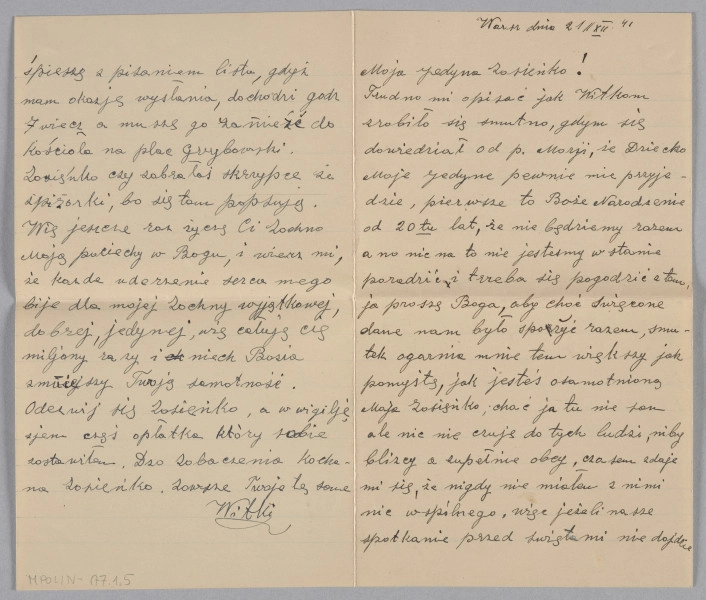 Warsz dnia 21/XII 41
Moja jedyna Zosieńko!
Trudno mi opisać jak Witkom
zrobiło się smutno, gdym się
dowiedział od p. Marji, że Dziecko
Moje jedyne pewnie nie przyje-
dzie, pierwsze to Boże Narodzenie
od 20tu lat, że nie będziemy razem
a no nic na to nie jesteśmy w stanie
poradzić, i trzeba się pogodzić z tem,
ja proszę Boga, aby choć święcone
dane nam było spożyć razem, smu-
tek ogarnia mnie tem większy jak
pomyślę, jak jesteś osamotniona
Moja Zosieńko, choć ja tu nie sam
ale nic nie czuję do tych ludzi, niby
blizcy a zupełnie obcy, czasem zdaje
mi się, że nigdy nie miałem z nimi
nic wspólnego, więc jeżeli nasze
spotkanie przed świętami nie dojdzie
śpieszę z pisaniem listu, gdyż
mam okazję wysłania, dochodzi godz
7 wiecz a muszę go zanieść do
Kościoła na plac Grzybowski.
Zosieńko czy zabrałaś skrzypce ze
śpiżarki, bo się tam popsują.
Więc jeszcze raz życzę Ci Zochno
Moja pociechy w Bogu, i wierz mi,
że każde uderzenie serca mego
bije dla mojej Zochny wyjątkowej,
dobrej, jedynej, więc całuję cię
miljony razy i niech Bozia
zmniejszy Twoją samotność.
Odezwij się Zosieńko, a w wigilję
zjem część opłatka który sobie
zostawiłem. Do zobaczenia Kocha-
na Zosieńko. Zawsze Twoje te same
Witki
MPOLIN-A7.1.5